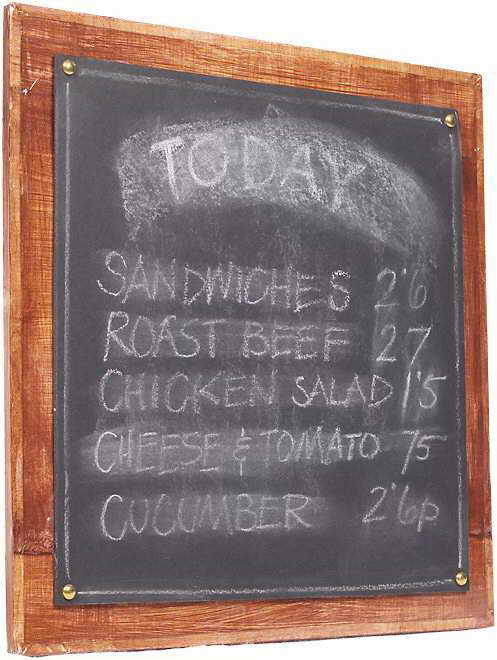 TODAY
SANDWICHES 2'6
ROAST BEEF 27
CHICKEN SALAD 1'5
CHEESE & TOMATO 75
CUCUMBER 2'6p